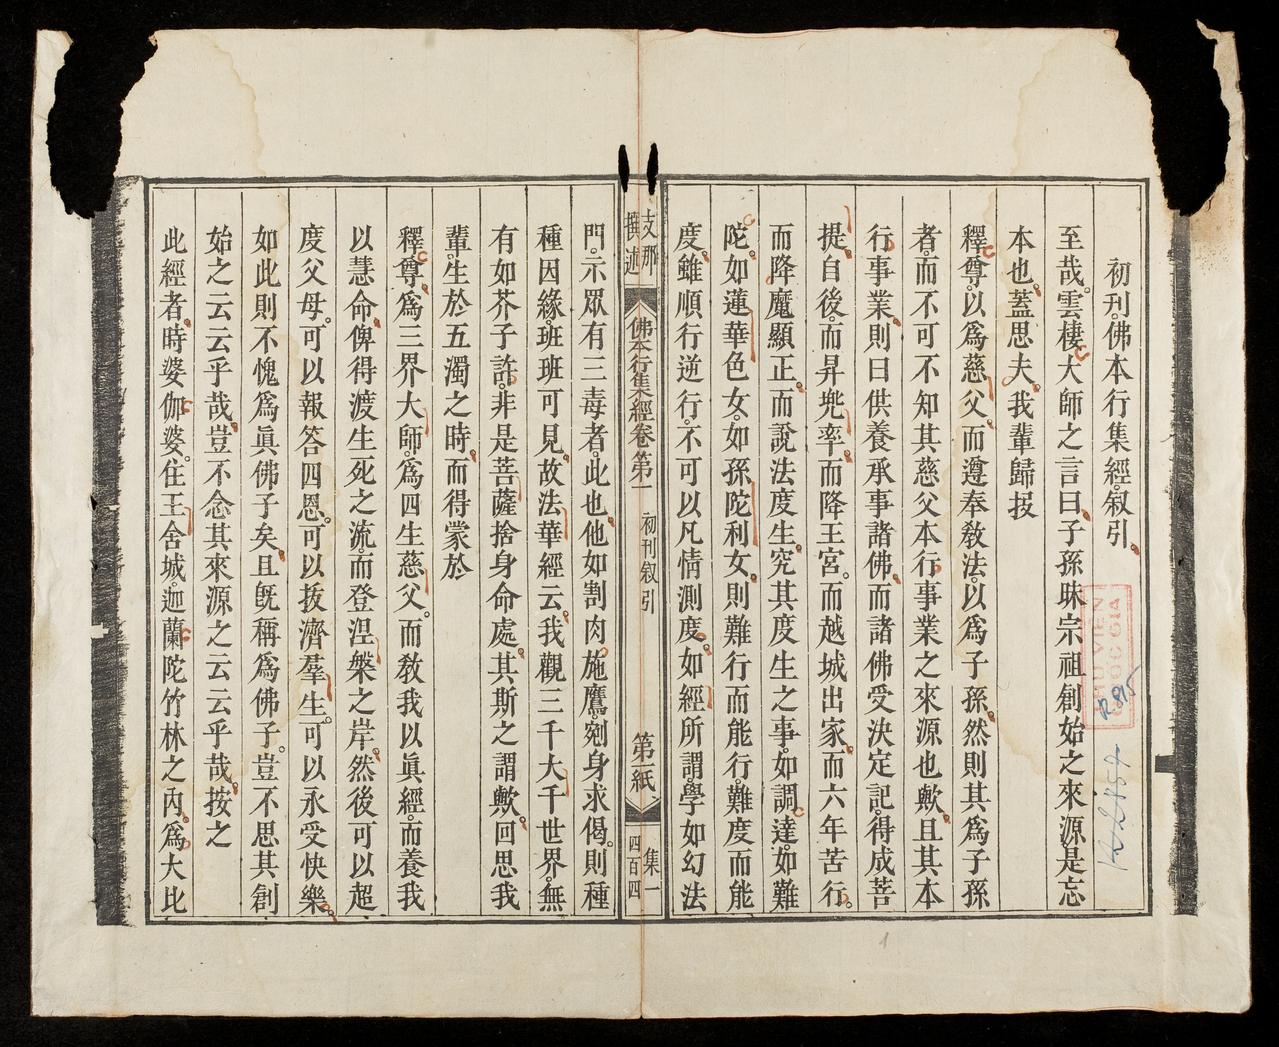 初刊佛本行集經叙引
至哉雲棲大師之言曰子孫昧宗祖創始之來源是忘
本也蓋思夫我輩歸投
釋尊以爲慈父而遵奉敎法以爲子孫然則其爲子孫
者而不可不知其慈父本行事業之來源也歟且其本
行事業則曰供養承事諸佛而諸佛受決定記得成菩
提自後而昇兜率而降王宮而越城出家而六年苦行
而降魔顯正而說法度生究其度生之事如調達如難
陀如蓮華色女如孫陀利女則難行而能行難度而能
度雖順行逆行不可以凡情測度如經所謂學如幻法
支那
撰述
佛本行集經卷第一
初刊叙引
第一紙
集一
四百四
門示眾有三毒者此也他如割肉施鷹剜身求偈則種
種因緣班班可見故法華經云我觀三千大千世界無
有如芥子許非是菩薩捨身命處其斯之謂歟回思我
輩生於五濁之時而得蒙於
釋尊爲三界大師爲四生慈父而敎我以眞經而養我
以慧命俾得渡生死之流而登涅槃之岸然後可以超
度父母可以報答四恩可以拔濟羣生可以永受快樂
如此則不愧爲眞佛子矣且旣稱爲佛子豈不思其創
始之云云乎哉豈不念其來源之云云乎哉按之
此經者時婆伽婆住王舍城迦蘭陀竹林之內爲大比
THU VIEN
QUOC GIA
R.895